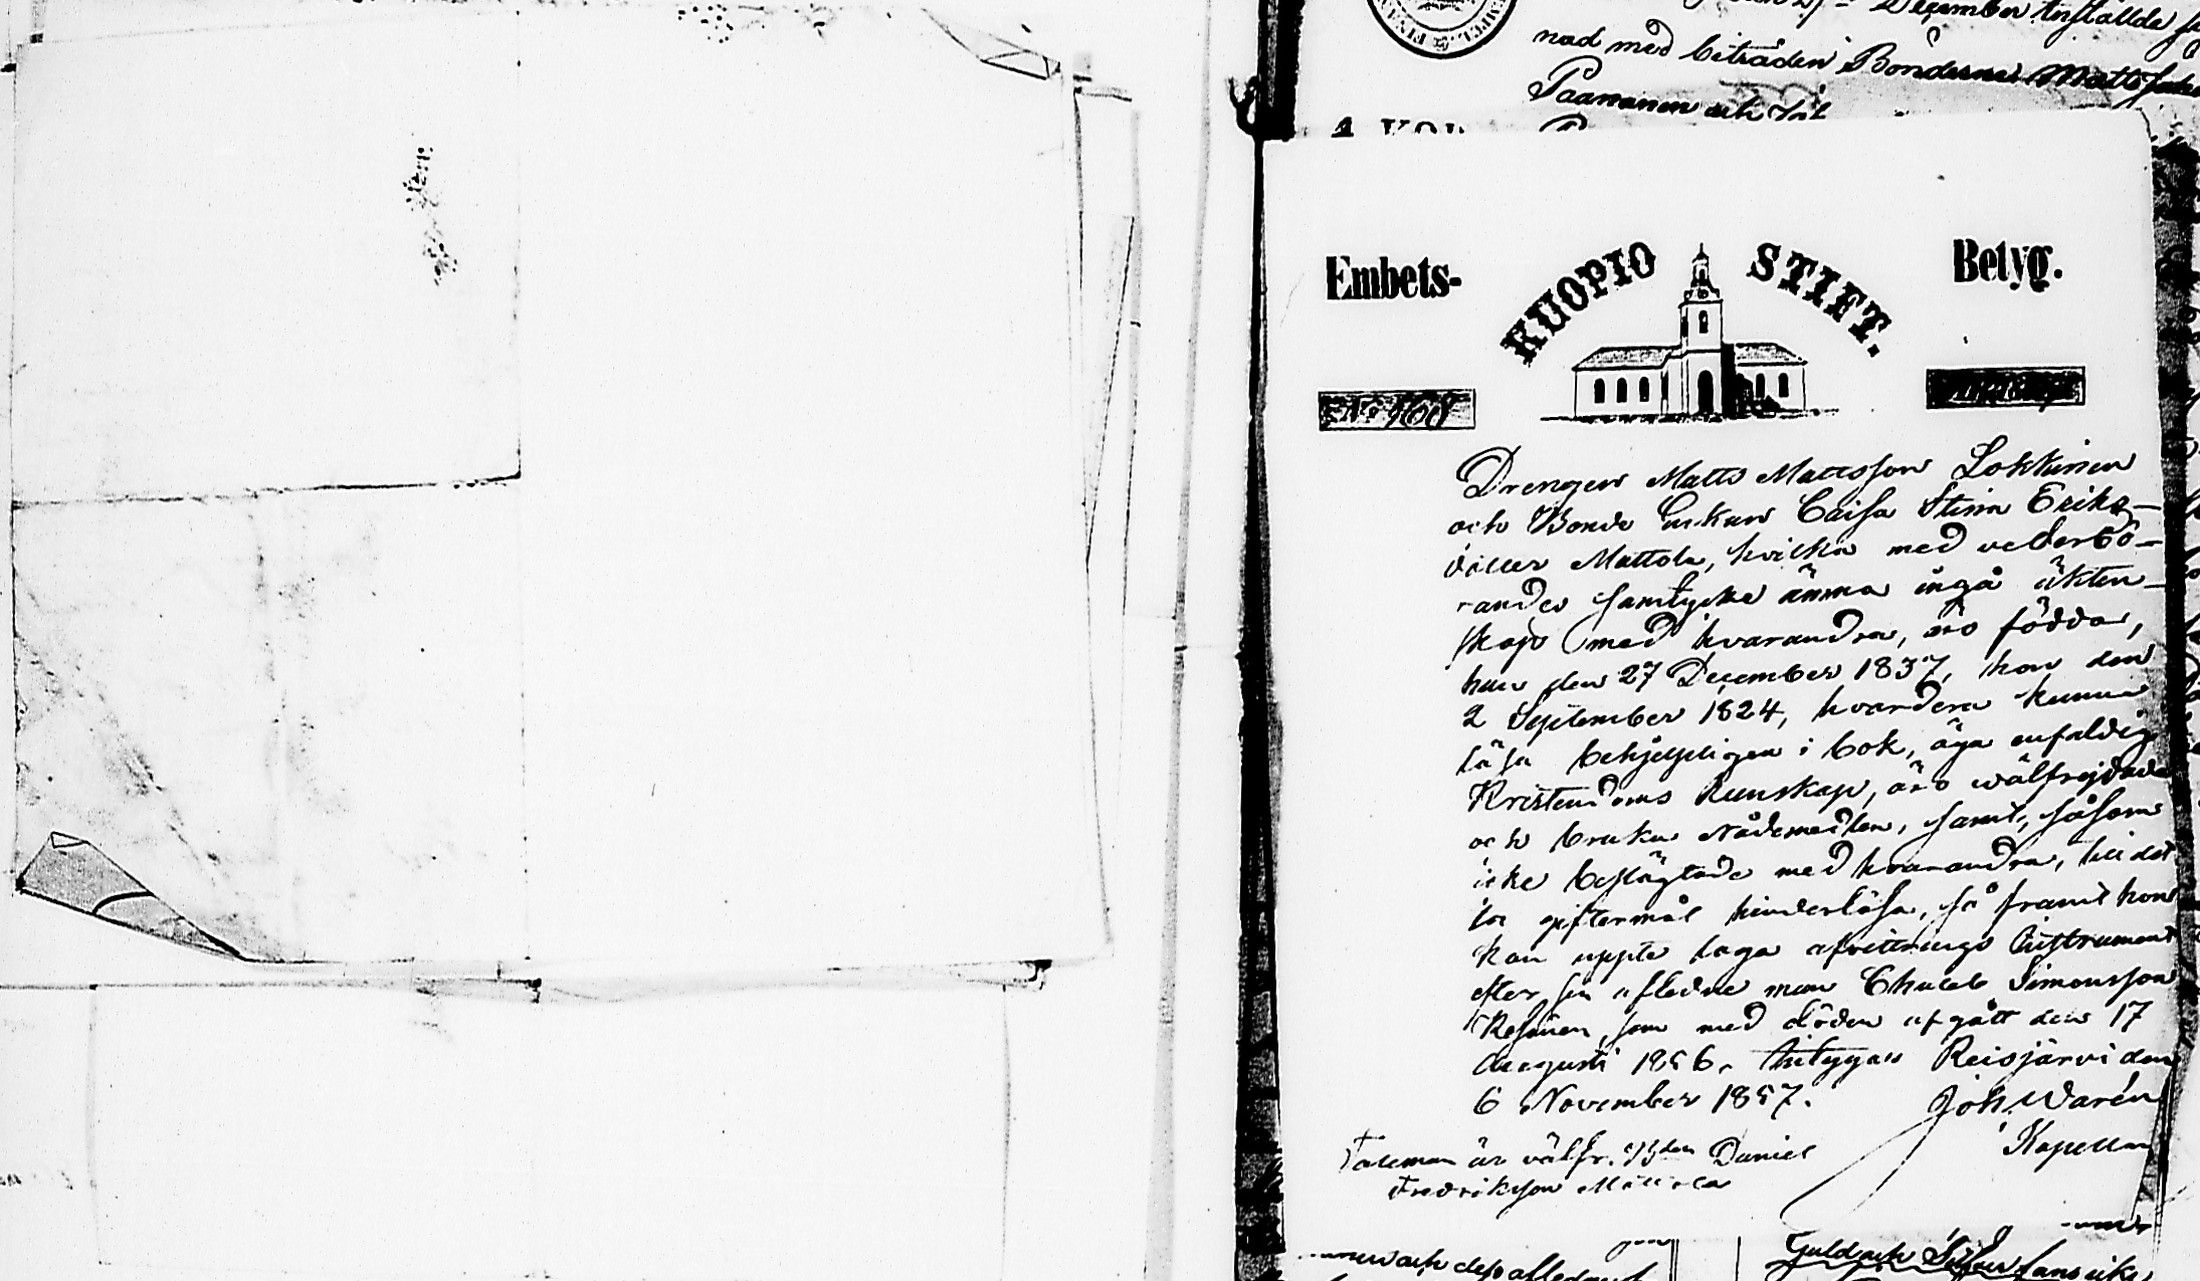 December
nad med biträden Bönderne Matts
Paananen och
Embets- KUOPIO STIFT. Betyg.
No 168
Drengen Matts Mattsson Lokkinen
och Bonde Enkan Caisa Stina Eriks-
dotter Mattola, hvilka med vederbö-
randes samtycke ämna ingå äkten-
skap med hvarandra, äro födda,
han den 27 December 1837, hon den
2 September 1824, hvardera kunna
läsa behjelpligen i bok, äga enfaldig
Kristendoms Kunskap, äro wälfrejdade
och bruka Nådemedlen, samt, såsom
icke beslägtade med hvarandra, till det
ta giftermål hinderlösa, så framt hon
kan uppte laga afvittrings Instrument
efter sin aflidne man Simonsson
som med döden afgått den 17
Augusti 1856. Intygas Reisjärvi den
6 November 1857.
Joh. Warén
Kapellan
Taleman är välfr. Bden Daniel
Fredriksson Mattola
Guld och Silfver